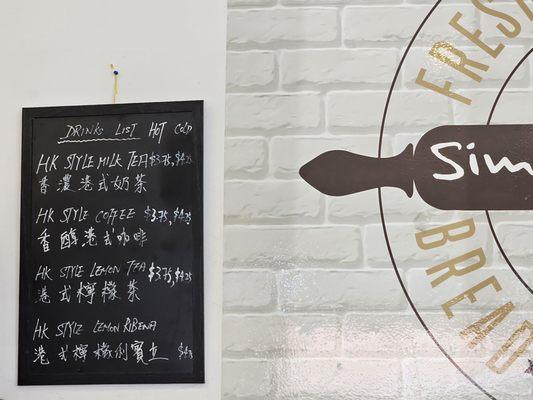 DRINKS LIST HOT COLD
HK STYLE MILK TEA $3.75, $4.25
香濃港式奶茶
HK STYLE COFFEE $3.75, $4.25
香醇港式咖啡
HK STYLE LEMON TEA $3.75, $4.25
港式檸檬茶
HK STYLE LEMON RIBENA
港式檸檬利賓立
FRES
Sim
BREAD